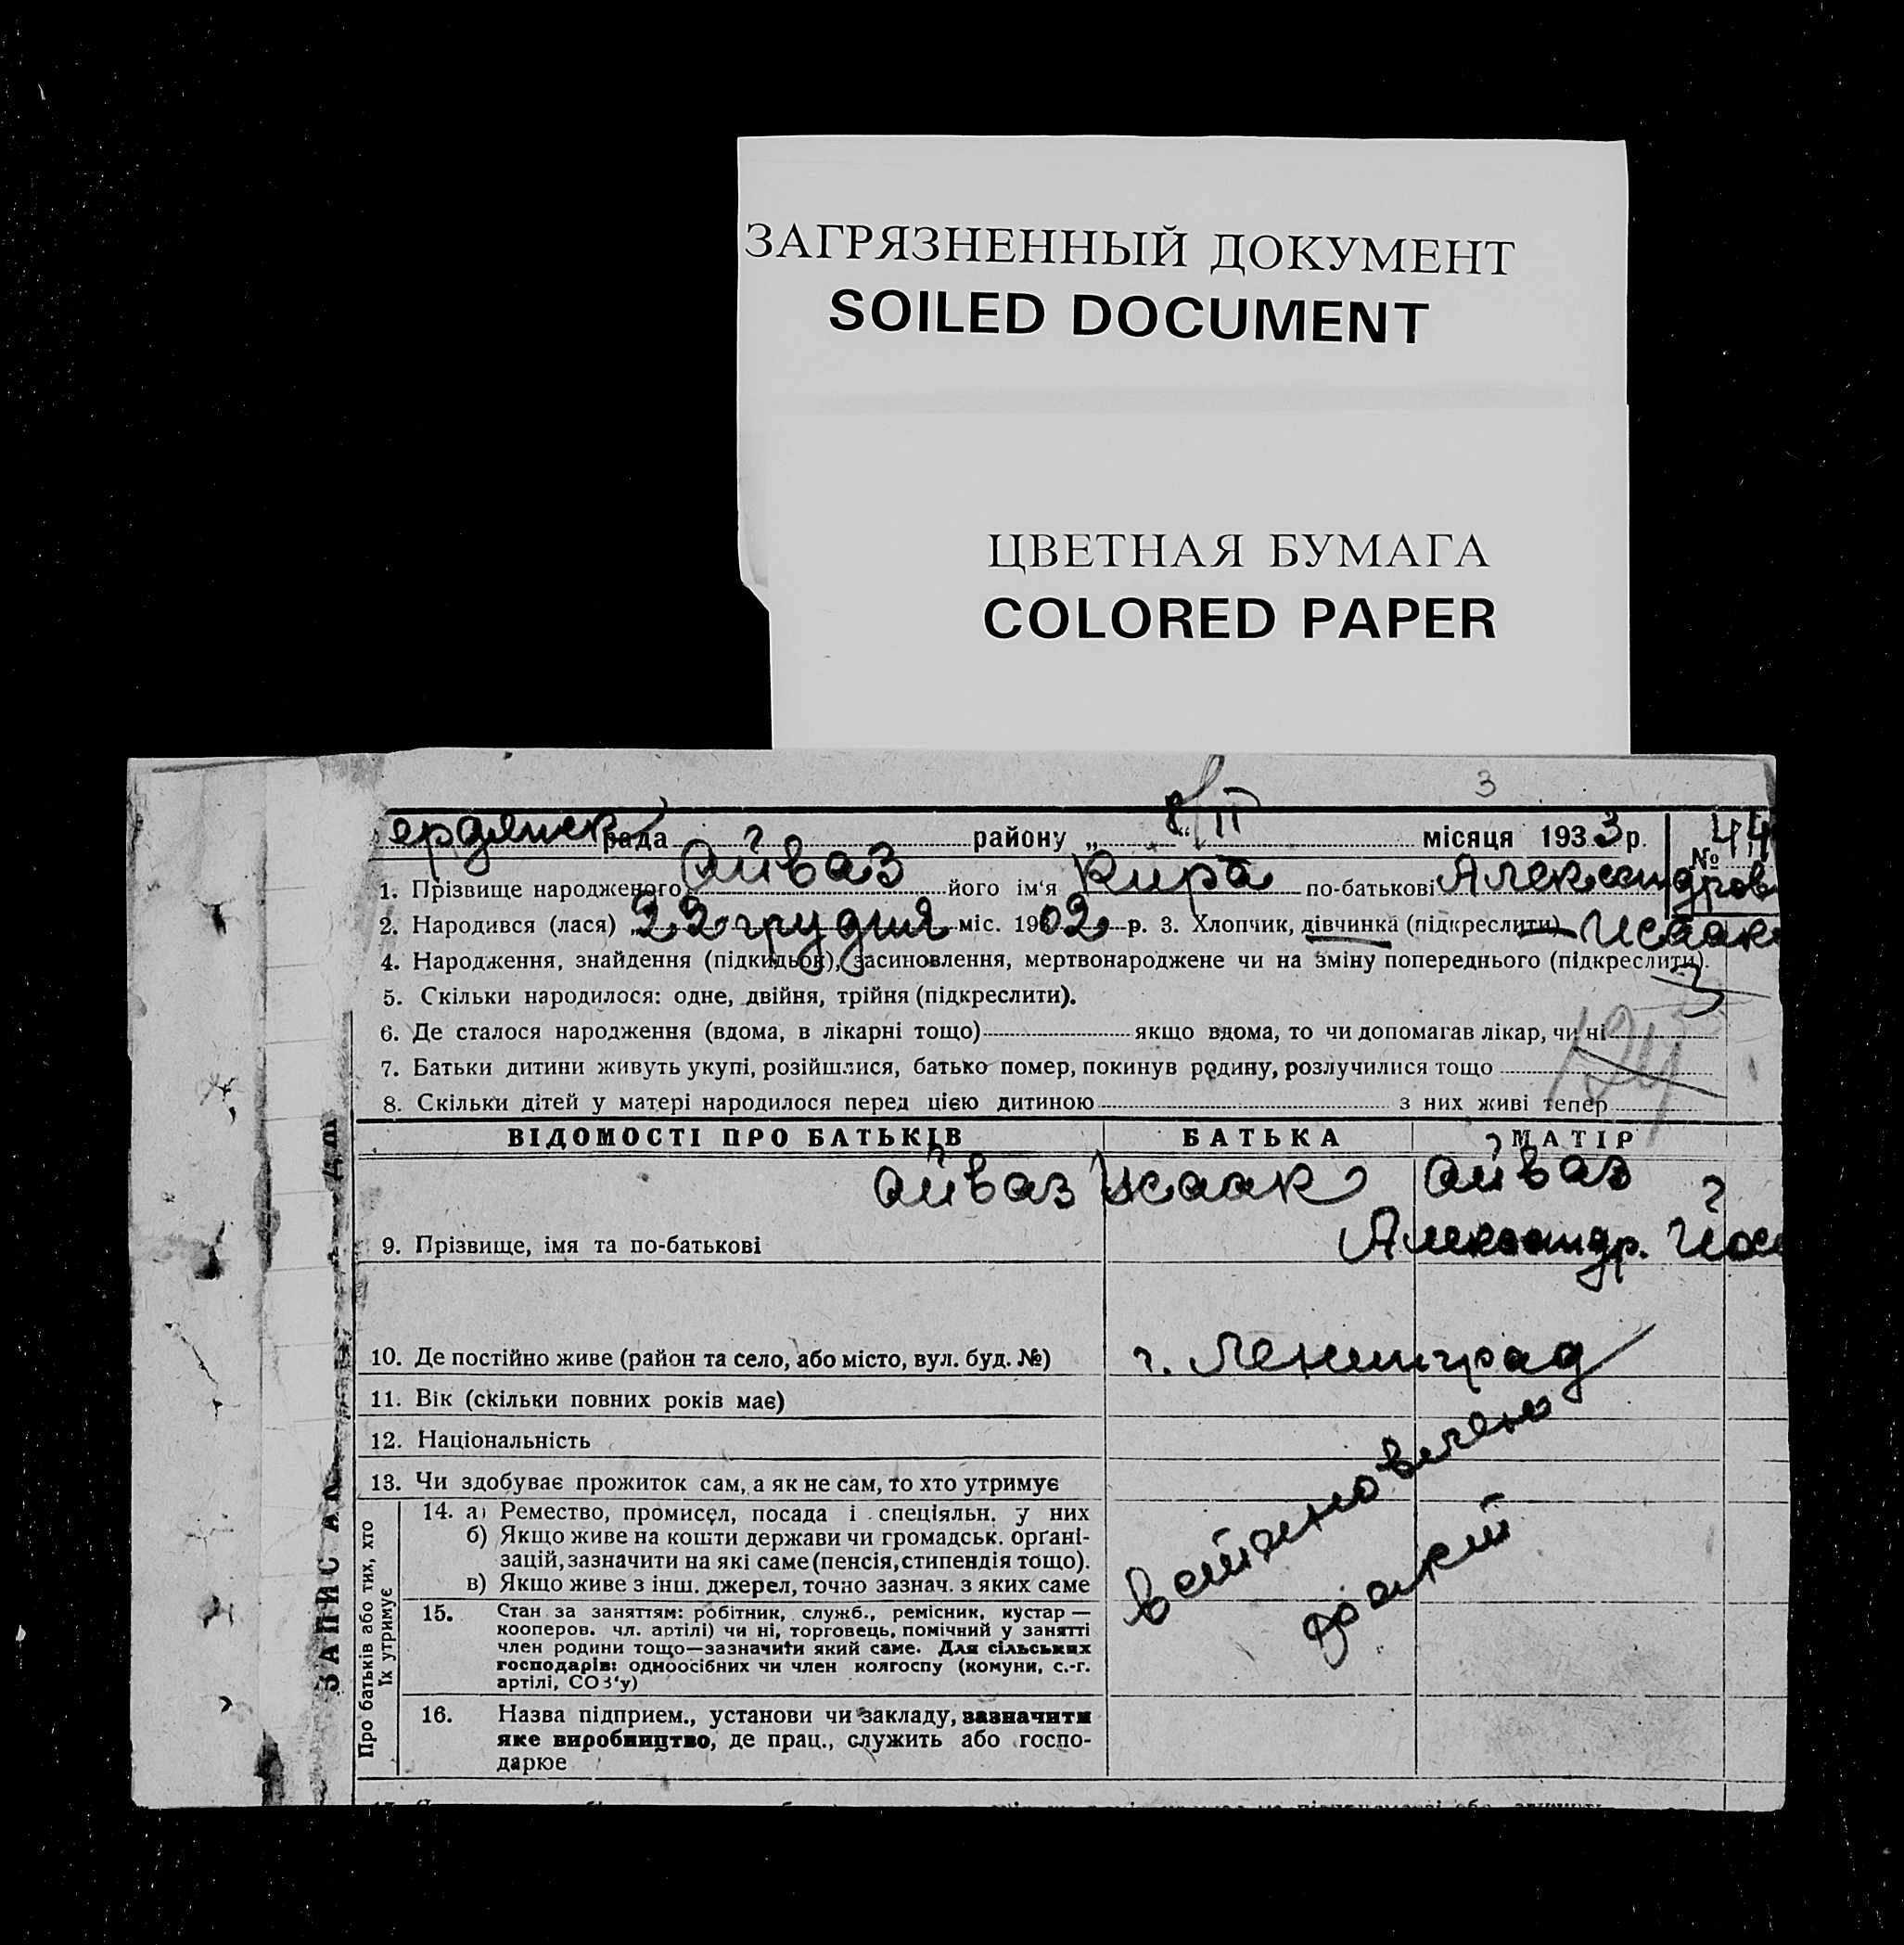 ЗАГРЯЗНЕННЫЙ ДОКУМЕНТ
SOILED DOCUMENT
ЦВЕТНАЯ БУМАГА
COLORED PAPER
3
ердянск рада району „ 8/II місяця 1933 р. № 44
1. Прізвище народженого Айваз його ім'я Кира по-батькові Александров
2. Народився (лася) „22 грудня міс. 1902 р. 3. Хлопчик, дівчинка (підкреслити) Исаак
4. Народження, знайдення (підкидьок), засиновлення, мертвонароджене чи на зміну попереднього (підкреслити).
5. Скільки народилося: одне, двійня, трійня (підкреслити).
6. Де сталося народження (вдома, в лікарні тощо) якщо вдома, то чи допомагав лікар, чи ні
7. Батьки дитини живуть укупі, розійшлися, батько помер, покинув родину, розлучилися тощо
8. Скільки дітей у матері народилося перед цією дитиною з них живі тепер
ВІДОМОСТІ ПРО БАТЬКІВ БАТЬКА МАТІР
Айваз Исаак Айваз
9. Прізвище, імя та по-батькові Александр.
10. Де постійно живе (район та село, або місто, вул. буд. №) г. Ленинград
11. Вік (скільки повних років має)
12. Національність
13. Чи здобуває прожиток сам, а як не сам, то хто утримує
14. а) Ремество, промисел, посада і спеціяльн. у них
б) Якщо живе на кошти держави чи громадськ. органі-
зацій, зазначити на які саме (пенсія, стипендія тощо).
в) Якщо живе з інш. джерел, точно зазнач. з яких саме
15. Стан за заняттям: робітник, служб., ремісник, кустар —
кооперов. чл. артілі) чи ні, торговець, помічний у занятті
член родини тощо—зазначити який саме. Для сільських
господарів: одноосібних чи член колгоспу (комуни, с.-г.
артілі, СОЗ'у)
16. Назва підприєм., установи чи закладу, зазначити
яке виробництво, де прац., служить або госпо-
дарює
Про батьків або тих, хто
їх утримує
ЗАПИС